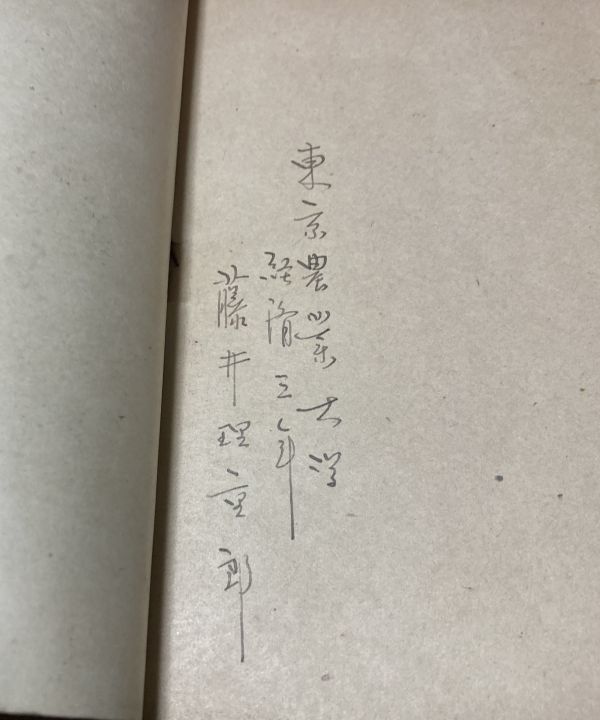 東京農業大学
経済三年
藤井理重郎